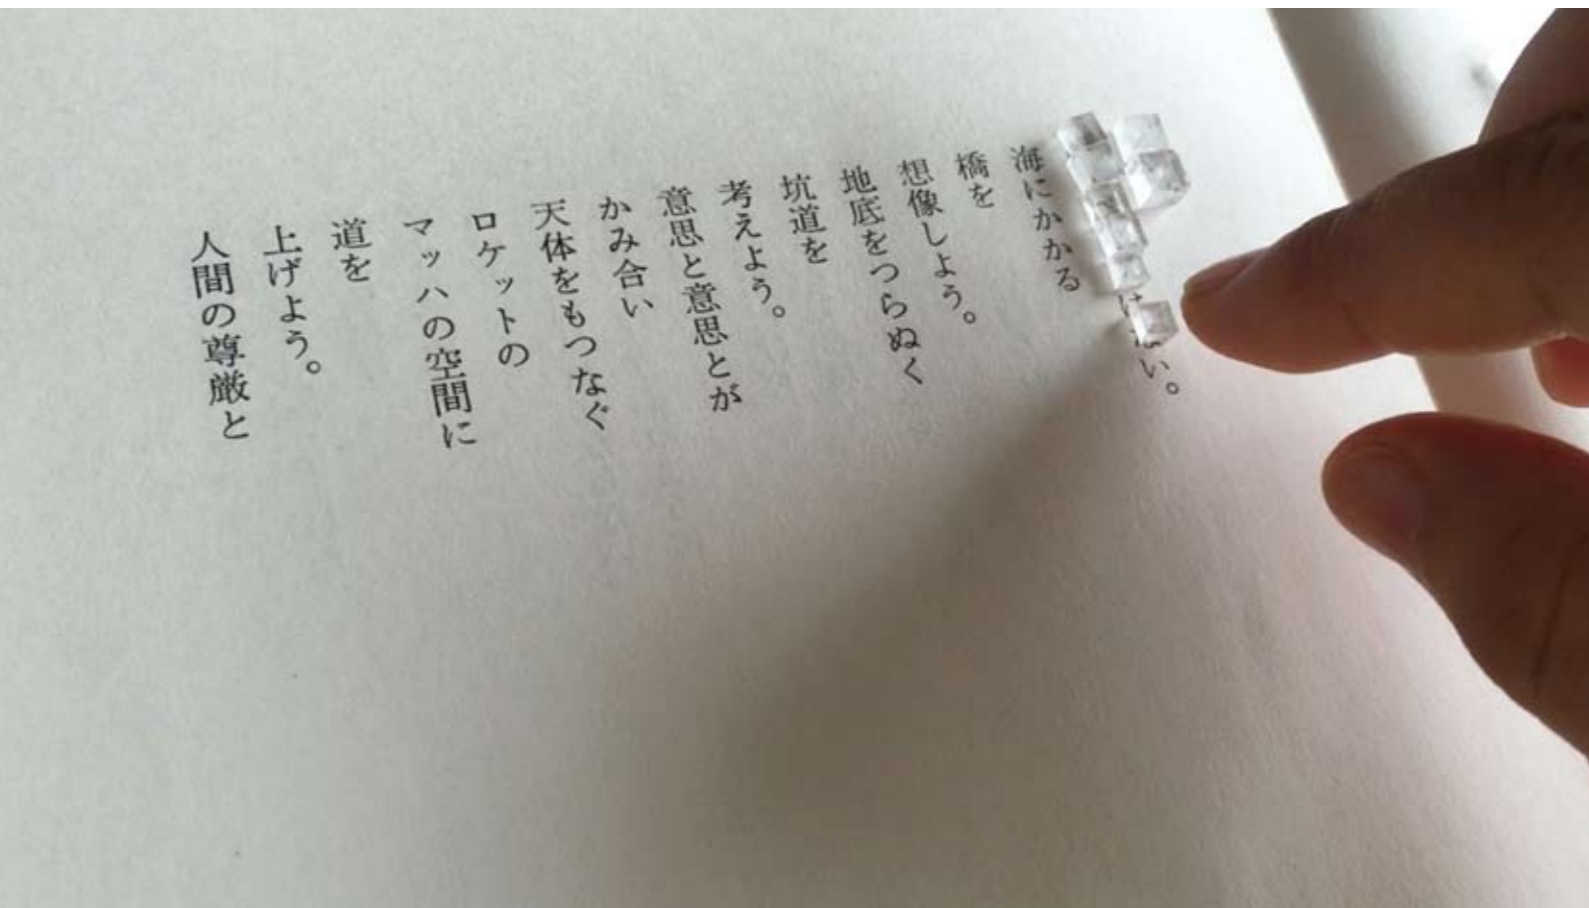 い。
海にかかる
橋を
想像しよう。
地底をつらぬく
坑道を
考えよう。
意思と意思とが
かみ合い
天体をもつなぐ
ロケットの
マッハの空間に
道を
上げよう。
人間の尊厳と